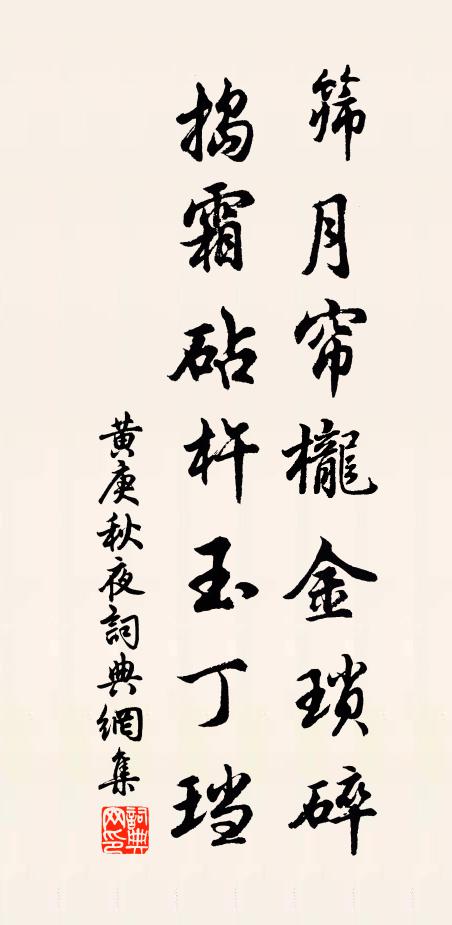 筛月帘櫳金瑣碎
搗霜砧杵玉丁珰
黄庚秋夜詞典網集
詞典網印